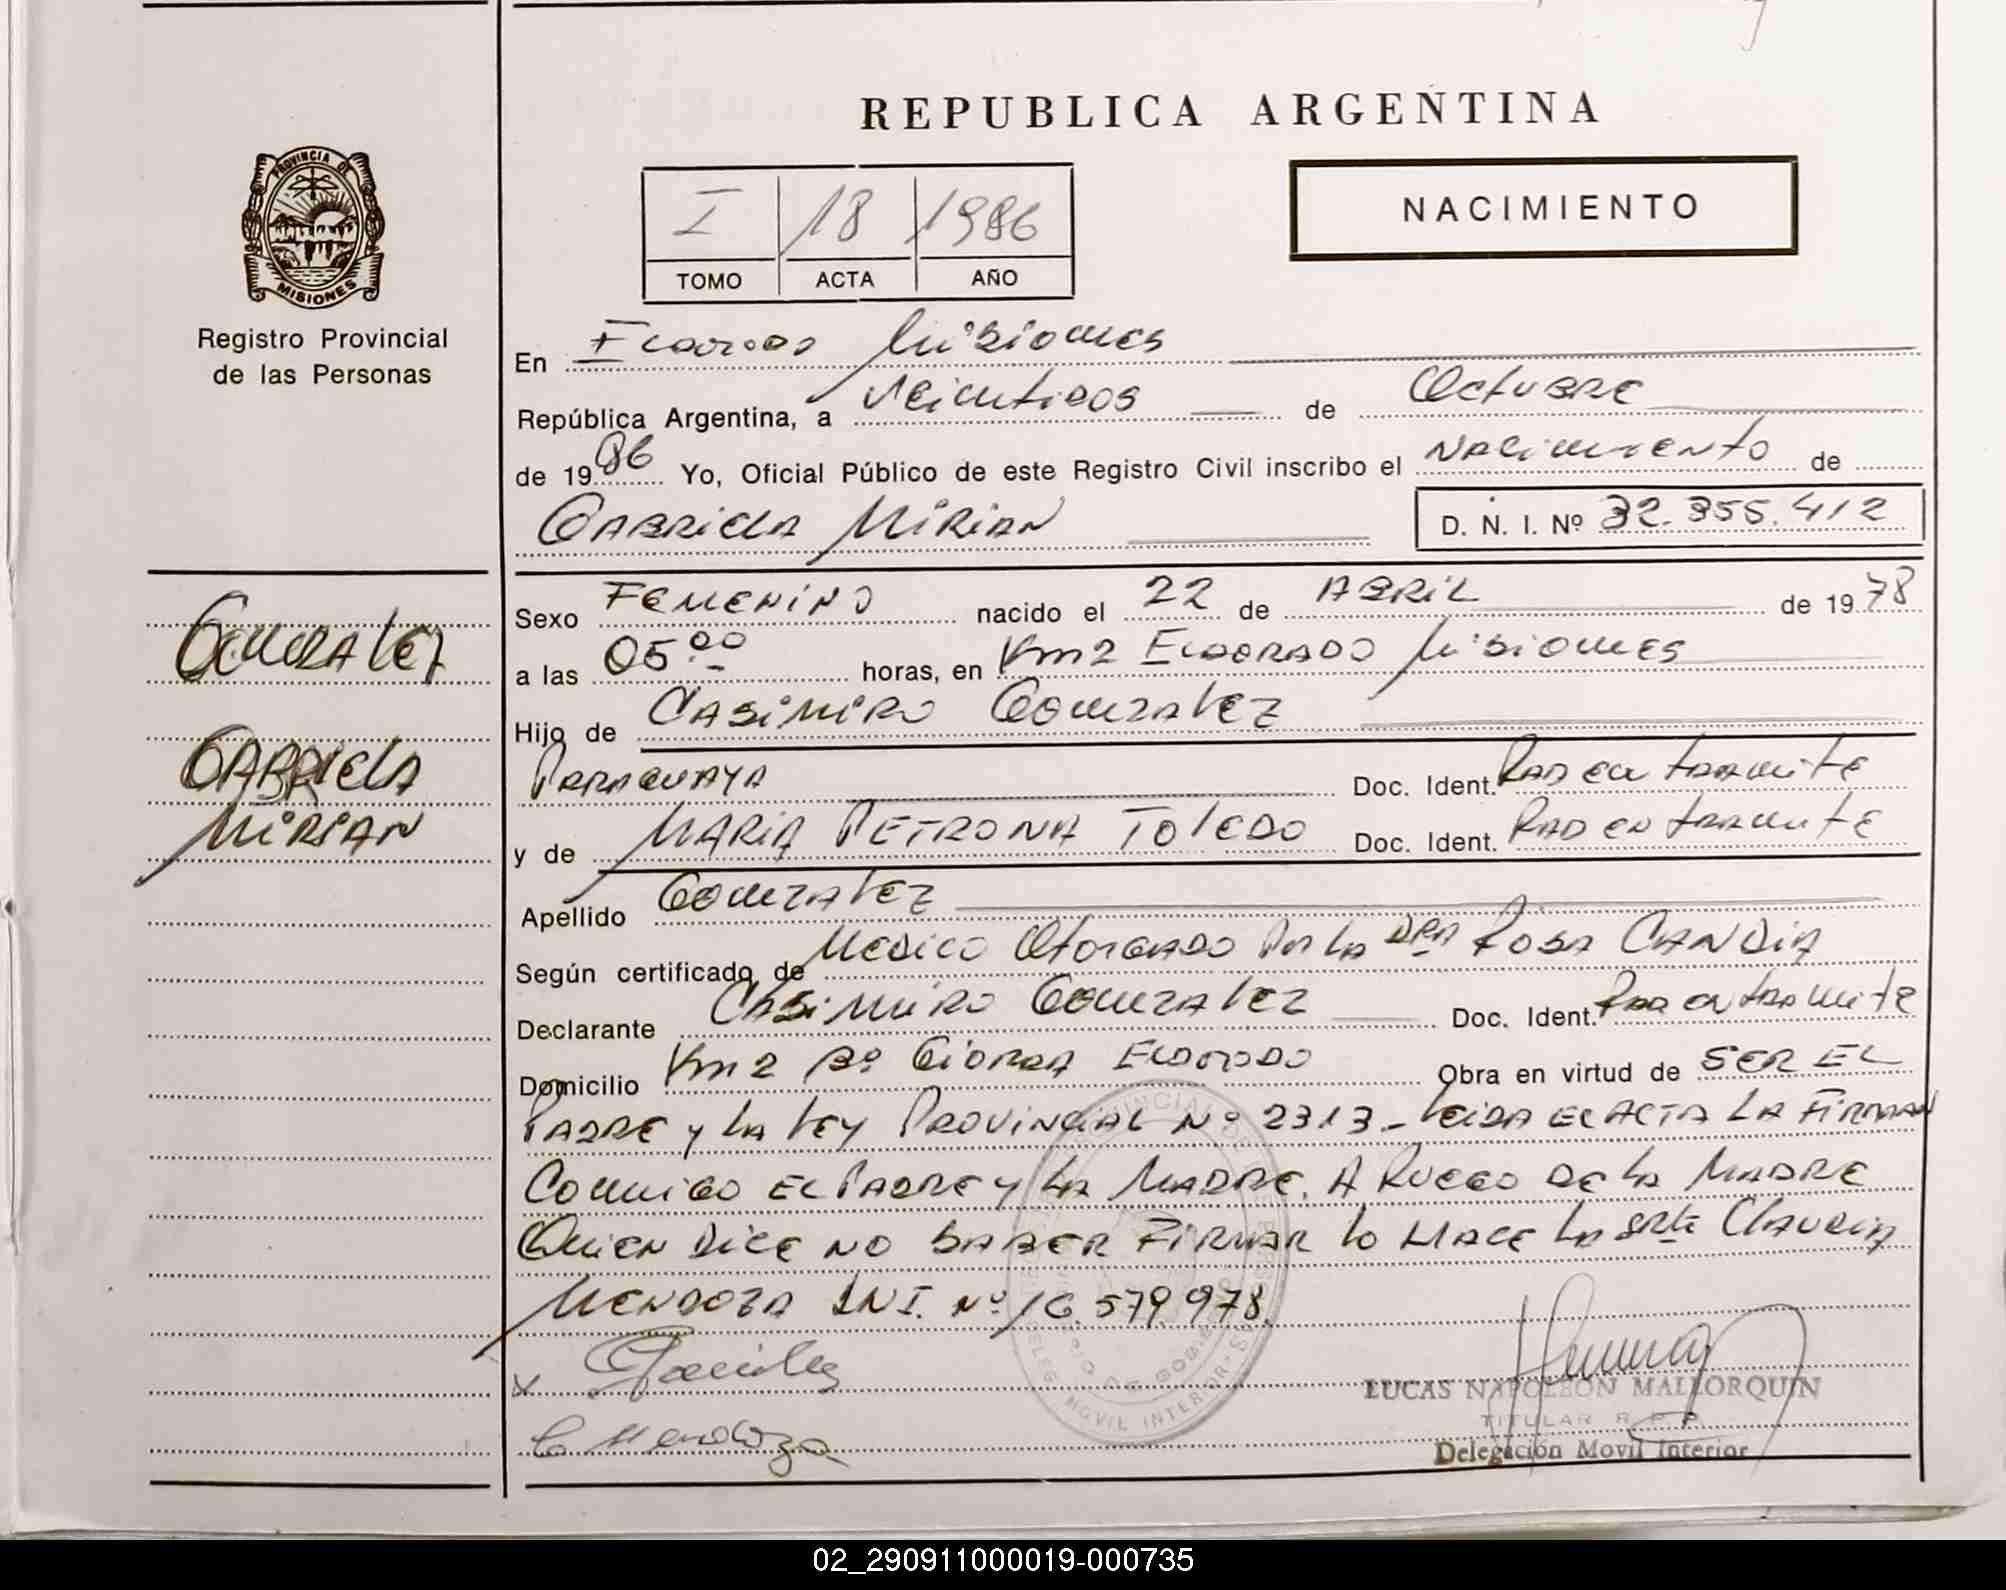 REPUBLICA ARGENTINA
PROVINCIA DE
MISIONES
Registro Provincial
de las Personas
I 18 1986
TOMO ACTA AÑO
NACIMIENTO
En Eldorado Misiones
República Argentina, a Veintidos de Octubre
de 1986 Yo, Oficial Público de este Registro Civil inscribo el Nacimiento de
Gabriela Mirian D. N. I. Nº 32.355.412
Gonzalez
Gabriela
Mirian
Sexo Femenino nacido el 22 de Abril de 1978
a las 05:00 horas, en Km 2 Eldorado Misiones
Hijo de Casimiro Gonzalez
Paraguaya Doc. Ident. Rad en tramite
y de Maria Petrona Toledo Doc. Ident. Rad en tramite
Apellido Gonzalez
Según certificado de Medico Otorgado Por la Dra Rosa Candia
Declarante Casimiro Gonzalez Doc. Ident. Rad en tramite
Domicilio Km 2 Bº Eldorado Obra en virtud de ser el
Padre y la Ley Provincial Nº 2313 - Leida el Acta la Firman
Conmigo el Padre y la Madre. A Ruego de la Madre
Quien dice no saber Firmar lo hace la Srta Claudia
Mendoza DNI. Nº 16.579.978.
x
C Mendoza
LUCAS NAPOLEON MALLORQUIN
TITULAR R. P. P.
Delegación Movil Interior
02_290911000019-000735